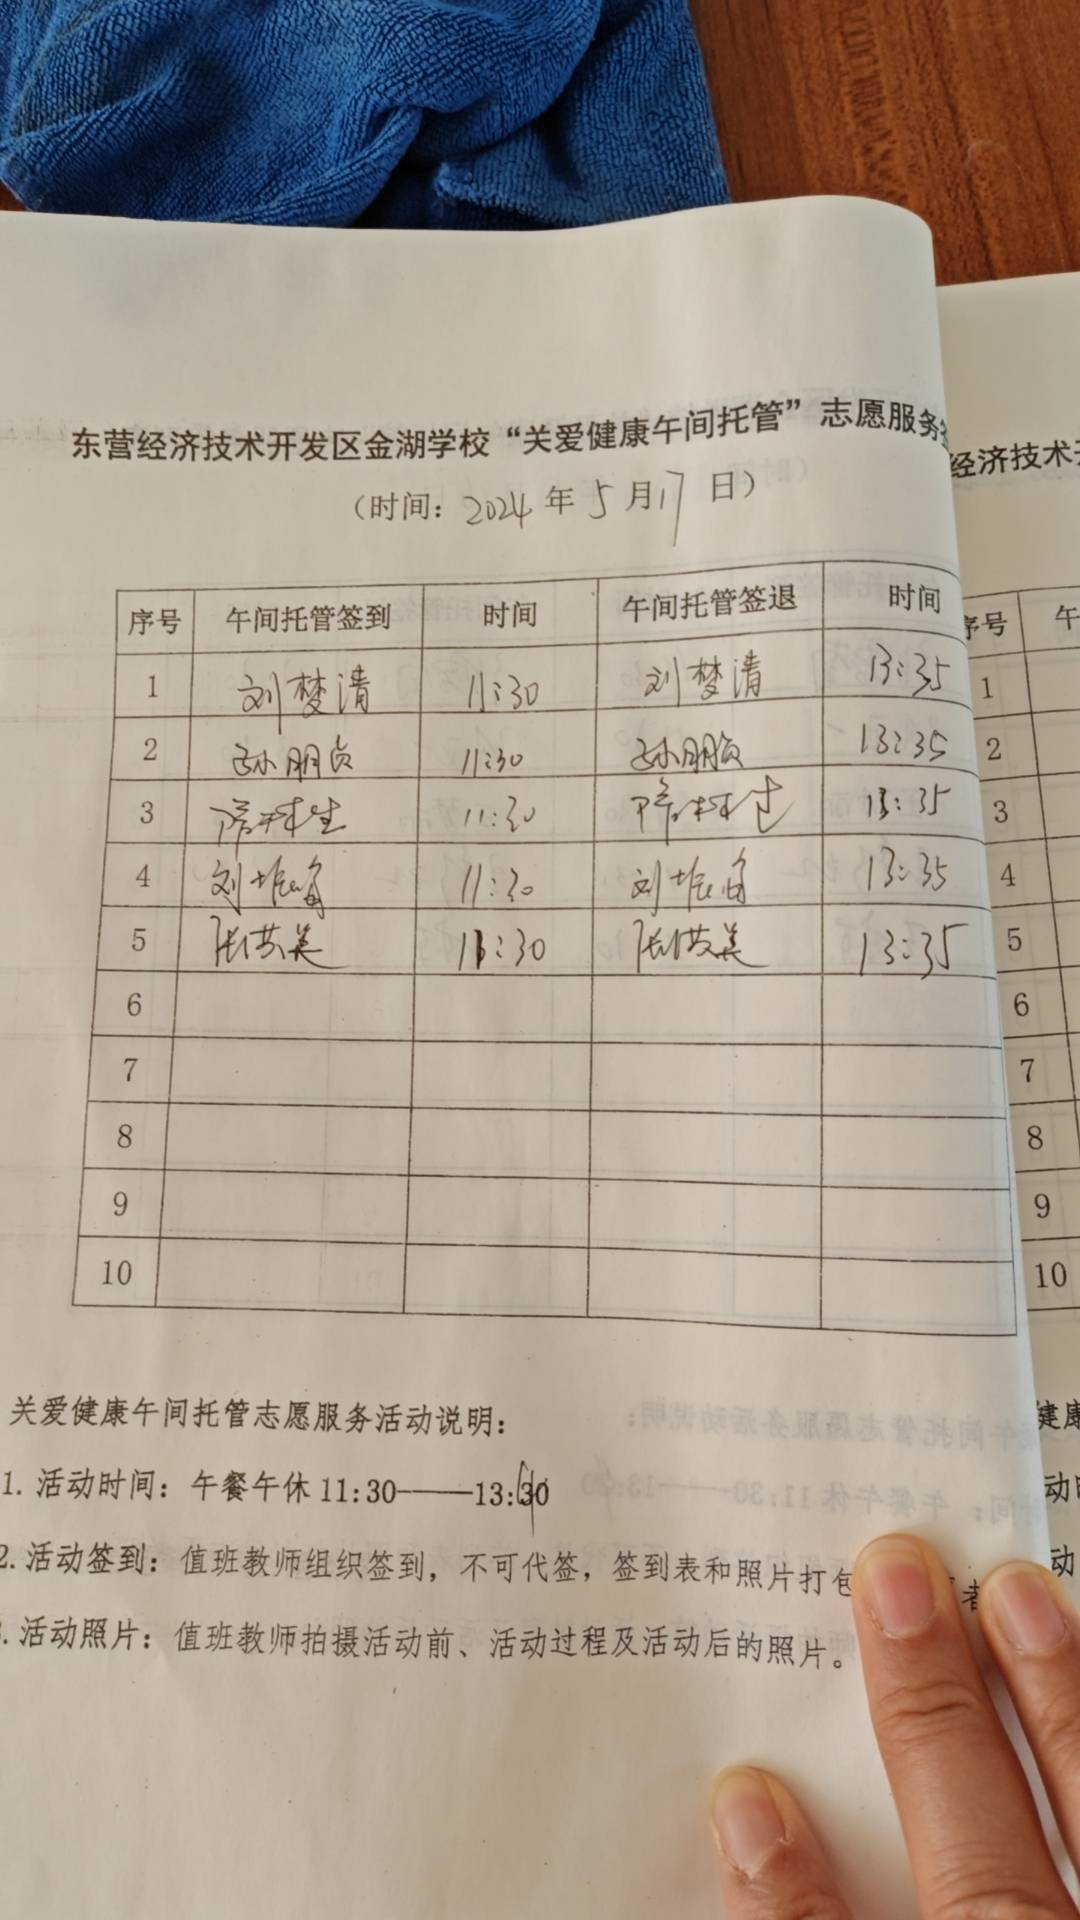 东营经济技术开发区金湖学校“关爱健康午间托管”志愿服务
(时间: 2024年5月17日)
序号 午间托管签到 时间 午间托管签退 时间
1 刘梦清 11:30 刘梦清 13:35
2 孙朋贞 11:30 孙朋贞 13:35
3 11:30 13:35
4 刘 11:30 刘 13:35
5 张英美 11:30 张英美 13:35
6
7
8
9
10
关爱健康午间托管志愿服务活动说明:
1.活动时间: 午餐午休 11:30——13:30
2.活动签到: 值班教师组织签到, 不可代签, 签到表和照片打包 者
.活动照片: 值班教师拍摄活动前、活动过程及活动后的照片。
经济技术
序号 午
1
2
3
4
5
6
7
8
9
10
健康
动
动